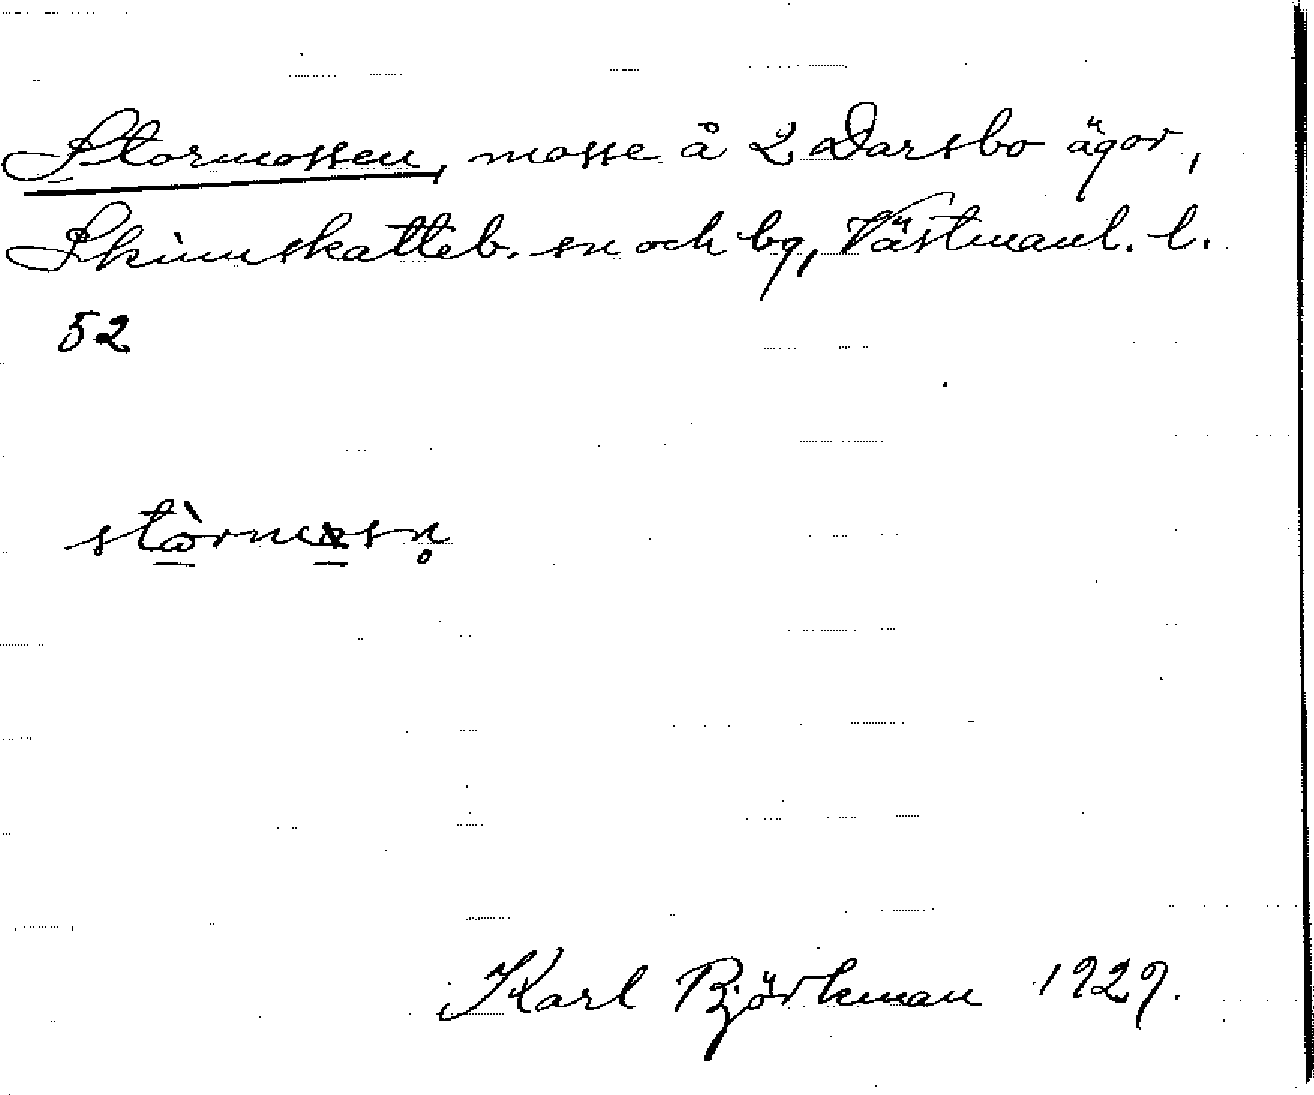 Stormossen, mosse å 2 Darsbo ägor,
Skinnskatteb. sn och bg, Västmanl. l.
52
stòrmosn̥
Karl Björkman 1929.